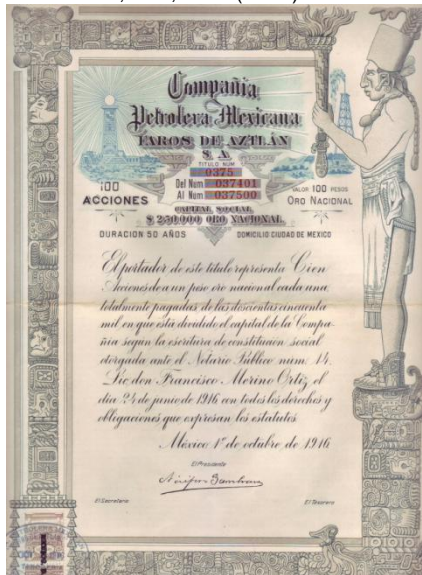 Compañia
Petrolera Mexicana
FAROS DE AZTLÁN
S. A.
TITULO NUM
0375
Del Num 037401
Al Num 037500
100
ACCIONES
VALOR 100 PESOS
ORO NACIONAL
CAPITAL SOCIAL
$ 250000 ORO NACIONAL
DURACION 50 AÑOS
DOMICILIO CIUDAD DE MEXICO
El portador de este titulo representa Cien
Acciones de a un peso oro nacional cada una
totalmente pagadas de las doscientas cincuenta
mil en que está dividido el capital de la Compa-
ñia segun la escritura de constitución social
otorgada ante el Notario Público num. 14.
Lic don Francisco Merino Ortiz el
dia 24 de junio de 1916 con todos los derechos y
obligaciones que expresan los estatutos
México 1º de octubre de 1916
El Presidente
El Secretario
El Tesorero